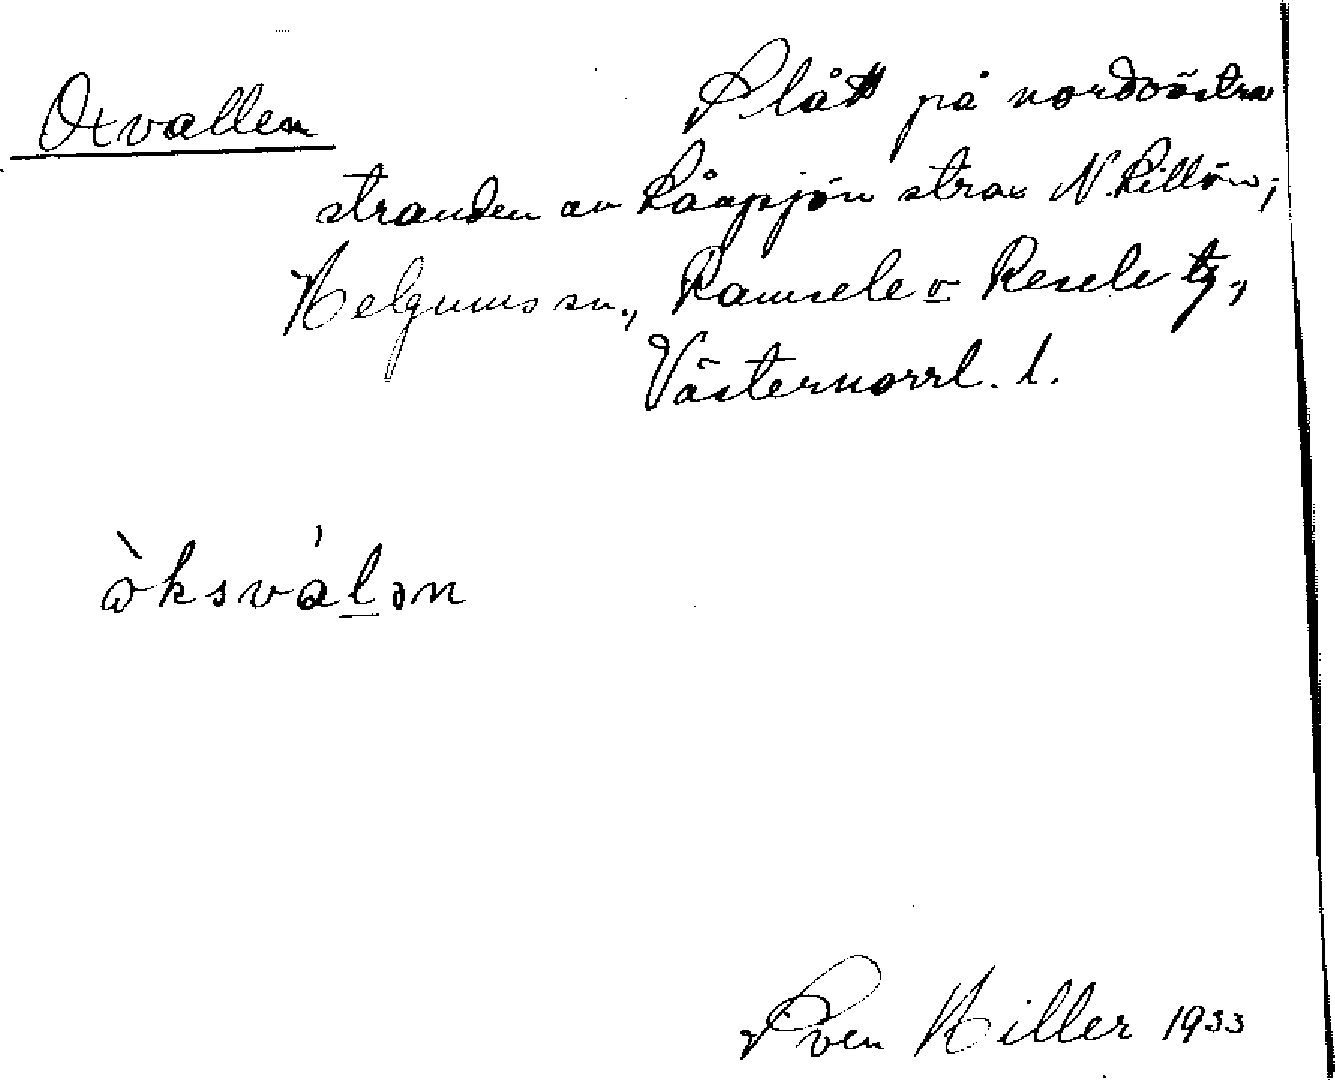 Oxvallen
Slått på nordöstra
stranden av Råssjön strax N. Lillön;
Helgums sn., Ramsele o Resele tg,
Västernorrl. l.
òksválən
Sven Hiller 1933